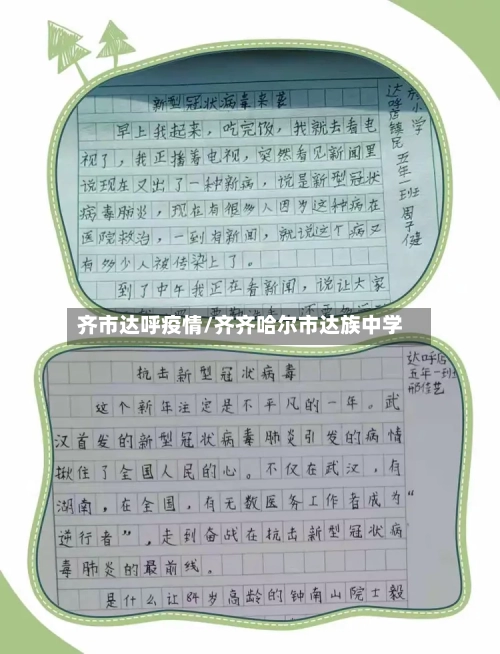 新型冠状病毒来袭
早上我起来，吃完饭，我就去看电
视了，我正播着电视，突然看见新闻里
说现在又出了一种新病，说是新型冠状
病毒肺炎，现在有很多人因为这种病在
医院救治，一到有新闻，就说这个病又
有多少人被传染上了。
到了中午我正在看新闻，说让大家
东小学
达呼店镇 五年一班 周子健
齐市达呼疫情/齐齐哈尔市达族中学
抗击新型冠状病毒
这个新年注定是不平凡的一年。武
汉首发的新型冠状病毒肺炎引发的病情
揪住了全国人民的心。不仅在武汉，有
湖南，在全国，有无数医务工作者成为“
逆行者”，走到奋战在抗击新型冠状病
毒肺炎的最前线。
是什么让84岁高龄的钟南山院士毅
达呼店
五年一班
邢佳艺